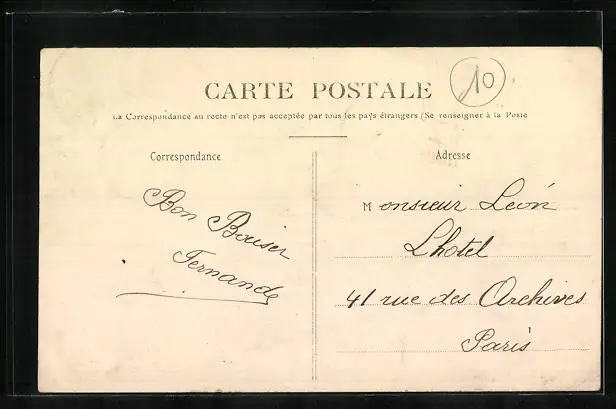 CARTE POSTALE
10
La Correspondance au recto n'est pas acceptée par tous les pays étrangers (Se renseigner à la Poste
Correspondance
Adresse
Bon Baiser
Fernande
Monsieur Léon
Lhotel
41 rue des Archives
Paris